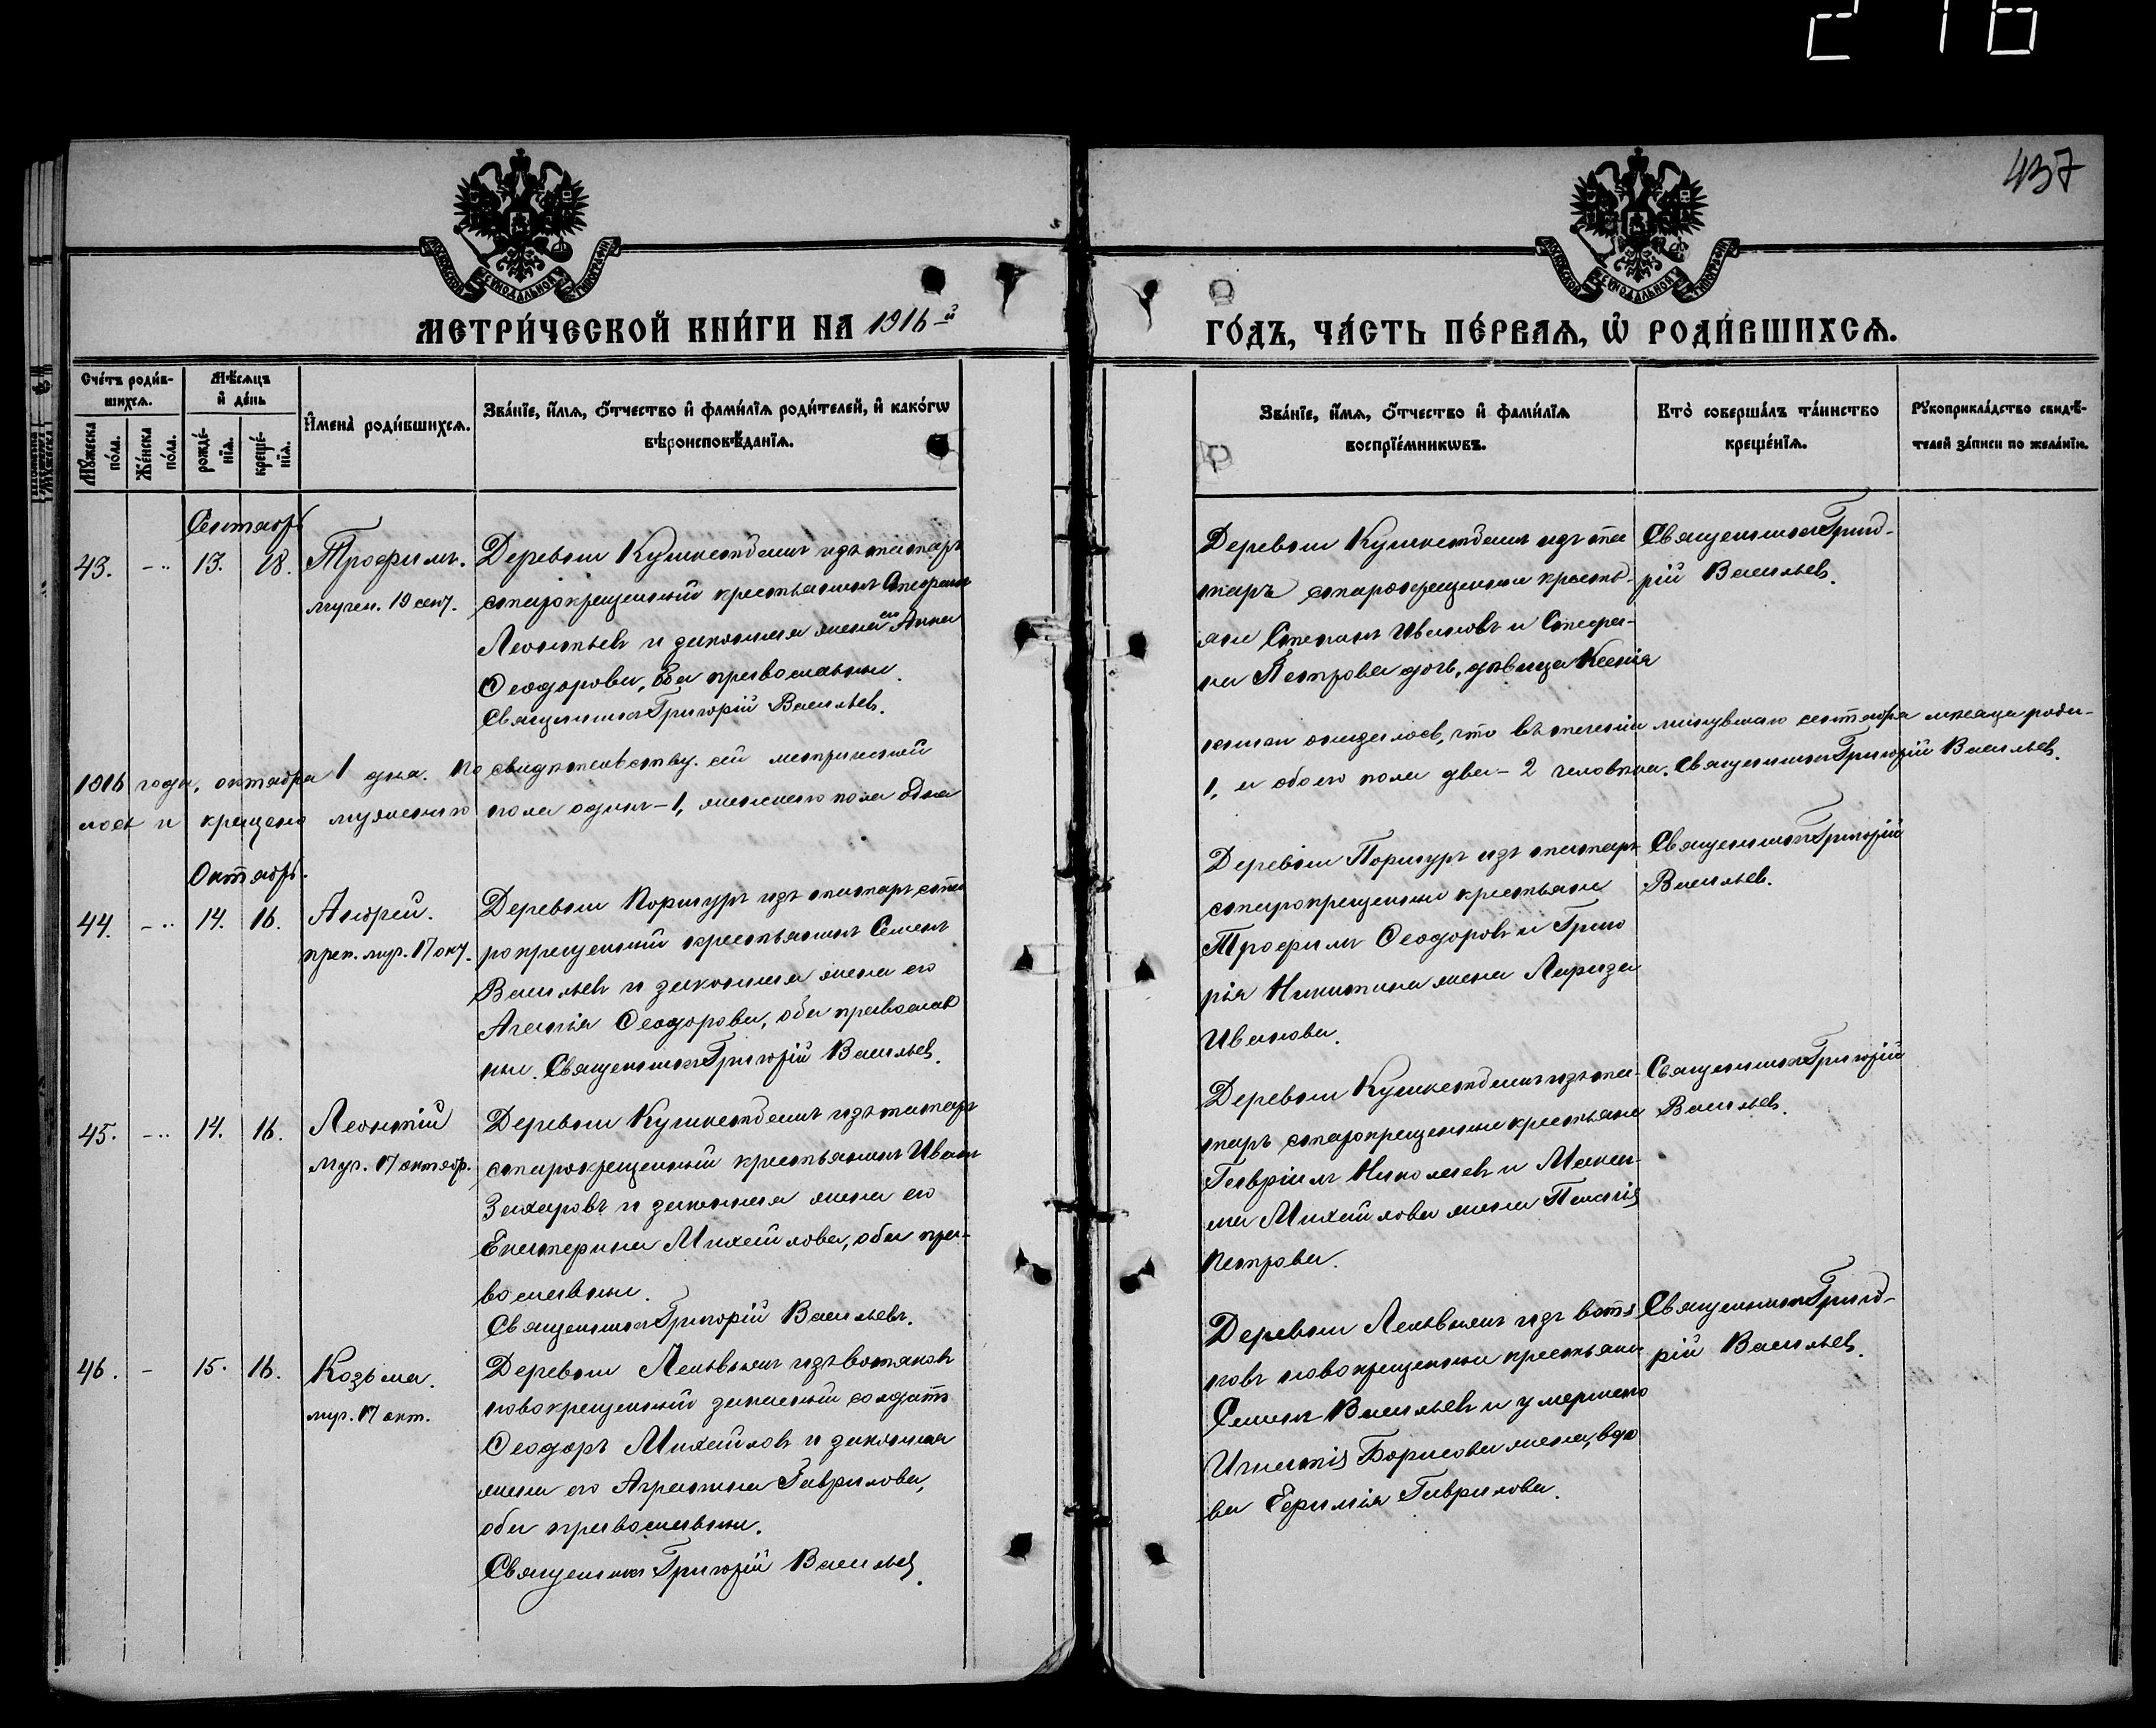 437
МОСКОВСКОЙ СѴНОДАЛЬНОЙ ТИПОГРАФІИ
МОСКОВСКОЙ СѴНОДАЛЬНОЙ ТИПОГРАФІИ
МЕТРИ́ЧЕСКОЙ КНИ́ГИ НА 1916-й
ГО́ДЪ, ЧА́СТЬ ПЕ́РВАѦ, Ѡ҆ РОДИ́ВШИХСѦ.
Сче́тъ роди́в-
шихсѧ.
Мѣ́сѧцъ
и҆ де́нь
Мꙋ́жеска
по́ла.
Же́нска
по́ла.
рожде́-
нїѧ.
креще́-
нїѧ.
И҆мена̀ роди́вшихсѧ.
Зва́нїе, и҆́мѧ, ѻ҆́тчество и҆ фами́лїѧ роди́телей, и҆ како́гѡ
вѣроисповѣ́данїѧ.
Зва́нїе, и҆́мѧ, ѻ҆́тчество и҆ фами́лїѧ
воспрїе́мникѡвъ.
Кто̀ соверша́лъ та́инство
креще́нїѧ.
Рꙋкоприкла́дство свидѣ́-
телей за́писи по жела́нїю.
Сентябрь
43. - 13. 18. Трофимъ.
мучен. 19 сент.
Деревни Кушкетбашъ изъ татаръ
старокрещенный крестьянинъ Стефанъ
Леонтьевъ и законная жена его Анна
Ѳеодорова, оба православны.
Священникъ Григорій Васильевъ.
Деревни Кушкетбашъ изъ та
таръ старокрещенны кресть-
яне Степанъ Ивановъ и Стефа-
на Петрова дочь, дѣвица Ксенія
Священникъ Григо-
рій Васильевъ.
1916 года, октября 1 дня. По свидѣтельству сей метрической
книги оказалось, что въ теченіи минувшаго сентября мѣсяца роди-
лось и крещено мужеского пола одинъ - 1, женского пола одна
1, а обоего пола два - 2 человѣка. Священникъ Григорій Васильевъ.
Октябрь.
44. - 14. 16. Андрей.
преп. муч. 17 окт.
Деревни Поршуръ изъ татаръ ста
рокрещенный крестьянинъ Семенъ
Васильевъ и законная жена его
Агафія Ѳеодорова, оба православ
ны. Священникъ Григорій Васильевъ.
Деревни Поршуръ изъ татаръ
старокрещенны крестьяне
Трофимъ Ѳеодоровъ и Григо
рія Никитина жена Лариза
Иванова.
Священникъ Григорій
Васильевъ.
45. - 14. 16. Леонтій
муч. 17 октяб.
Деревни Кушкетбашъ изъ татаръ
старокрещенный крестьянинъ Иванъ
Захаровъ и законная жена его
Екатерина Михайлова, оба пра-
вославны.
Священникъ Григорій Васильевъ.
Деревни Кушкетбашъ изъ та-
таръ старокрещенные крестьяне
Гавріилъ Николаевъ и Макси-
ма Михайлова жена
Петрова.
Священникъ Григорій
Васильевъ.
46. - 15. 16. Козьма.
муч. 17 окт.
Деревни изъ вотяковъ
новокрещенный запасный солдатъ
Ѳеодоръ Михайловъ и законная
жена его Агрипина Гаврилова,
оба православны.
Священникъ Григорій Васильевъ.
Деревни изъ вотя
ковъ новокрещенны крестьяне
Семенъ Васильевъ и умершего
Игнатія Борисова жена, вдо
ва Ефимія Гаврилова.
Священникъ Григо-
рій Васильевъ.